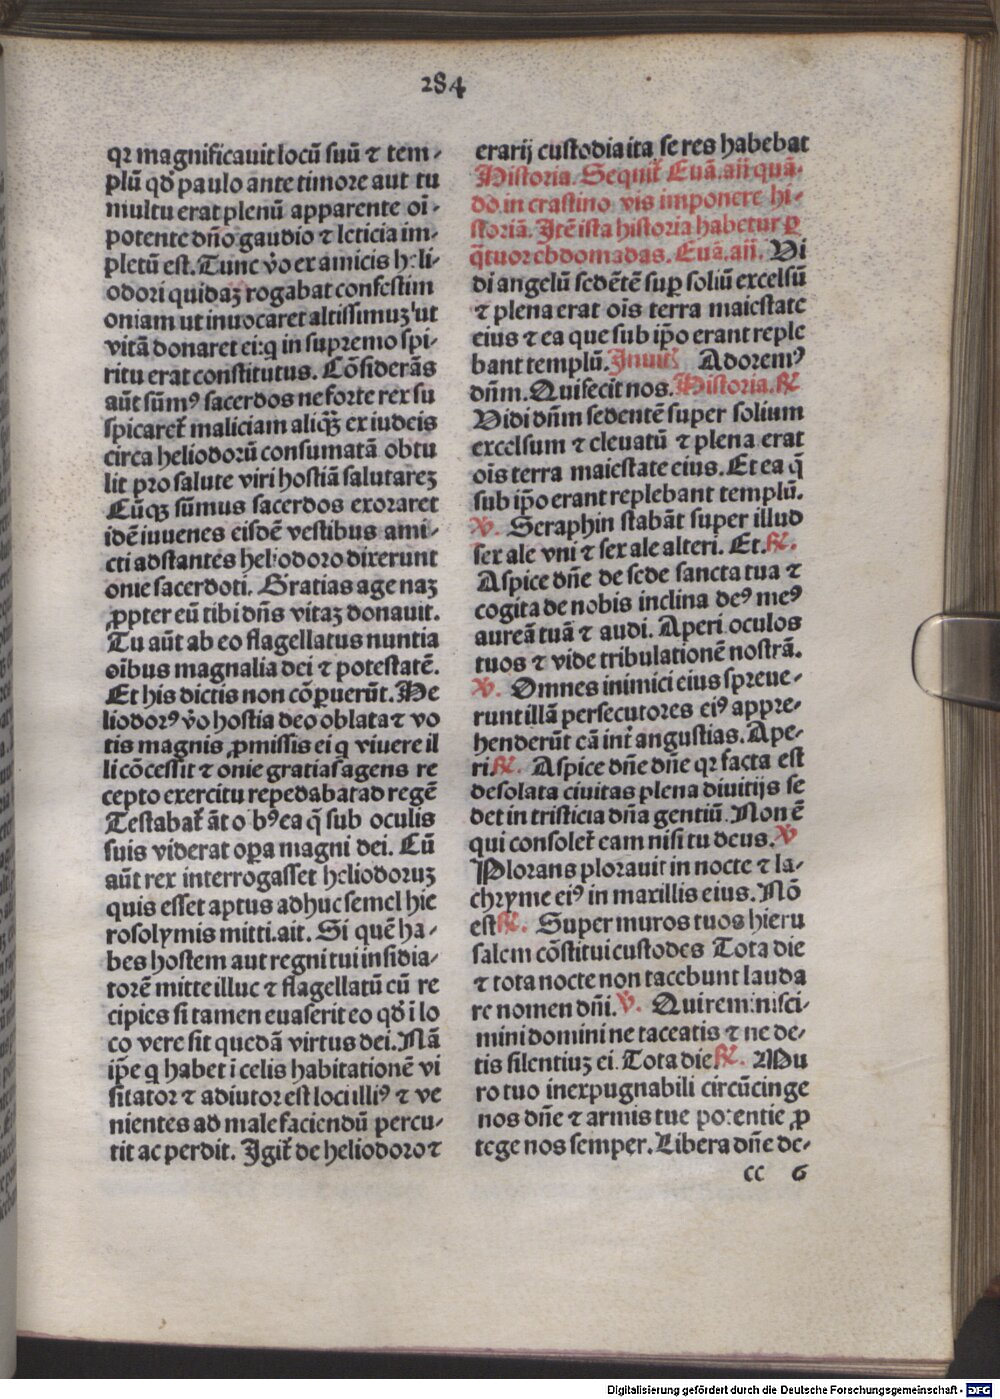 284
qꝛ magnificauit locū suū ⁊ tem-
plū qd̕ paulo ante timore aut tu
multu erat plenū apparente oī-
potente dño gaudio ⁊ leticia im-
pletū est. Tunc ꝟo ex amicis heli-
odori quidaꝫ rogabat confestim
oniam ut inuocaret altissimuꝫ ut
vitā donaret ei: q̕ in supremo spi-
ritu erat constitutus. Cōsiderās
aūt sūmꝰ sacerdos ne forte rex su
spicaret̕ maliciam aliqȝ̄ ex iudeis
circa heliodorū consumatā obtu
lit pro salute viri hostiā salutareꝫ
Cūqꝫ sūmus sacerdos exoraret
idē iuuenes eisdē vestibus ami-
cti adstantes heliodoro dixerunt
onie sacerdoti. Gratias age naꝫ
ꝓpter eū tibi dñs vitaꝫ donauit.
Tu aūt ab eo flagellatus nuntia
oībus magnalia dei ⁊ potestatē.
Et his dictis non cōꝑuerūt. He
liodorꝰ ꝟo hostia deo oblata ⁊ vo
tis magnis ꝓmissis ei q̕ viuere il
li cōcessit ⁊ onie gratias agens re
cepto exercitu repedabat ad regē
Testabat̕ āt oībꝰ ea q̄ sub oculis
suis viderat oꝑa magni dei. Cū
aūt rex interrogasset heliodoruꝫ
quis esset aptus adhuc semel hie
rosolymis mitti. ait. Si quē ha-
bes hostem aut regni tui insidia-
torē mitte illuc ⁊ flagellatū cū re
cipies si tamen euaserit eo qd̕ ī lo
co vere sit quedā virtus dei. Nā
ip̄e q̕ habet ī celis habitationē vi
sitator ⁊ adiutor est loci illiꝰ ⁊ ve
nientes ad malefaciendū percu-
tit ac perdit. Igit̕ de heliodoro ⁊
erarij custodia ita se res habebat
Historia. Sequit̕ Euā. aīj quā-
do in crastino vis imponere hi-
storiā. Itē ista historia habetur ꝑ
q̄tuor ebdomadas. Euā. aīj. Vi
di angelū sedētē suꝑ soliū excelsū
⁊ plena erat oīs terra maiestate
eius ⁊ ea que sub ip̄o erant reple
bant templū. Inuit̕ Adoremꝰ
dñm. Qui fecit nos. Historia. ℟
Vidi dñm sedentē super solium
excelsum ⁊ eleuatū ⁊ plena erat
oīs terra maiestate eius. Et ea q̄
sub ip̄o erant replebant templū.
℣. Seraphin stabāt super illud
sex ale vni ⁊ sex ale alteri. Et. ℟.
Aspice dñe de sede sancta tua ⁊
cogita de nobis inclina deꝰ meꝰ
aureā tuā ⁊ audi. Aperi oculos
tuos ⁊ vide tribulationē nostrā.
℣. Omnes inimici eius spreue-
runt illā persecutores eiꝰ appre-
henderūt eā int̕ angustias. Ape-
ri ℟. Aspice dñe dñe qꝛ facta est
desolata ciuitas plena diuitijs se
det in tristicia dñā gentiū. Non ē
qui consolet̕ eam nisi tu deus. ℣
Plorans plorauit in nocte ⁊ la-
chryme eiꝰ in maxillis eius. Nō
est ℟. Super muros tuos hieru
salem cōstitui custodes Tota die
⁊ tota nocte non tacebunt lauda
re nomen dñi. ℣. Qui reminisci-
mini domini ne taceatis ⁊ ne de-
tis silentiuꝫ ei. Tota die ℟. Mu
ro tuo inexpugnabili circūcinge
nos dñe ⁊ armis tue potentie ꝓ
tege nos semper. Libera dñe de-
cc 6
Digitalisierung gefördert durch die Deutsche Forschungsgemeinschaft - DFG